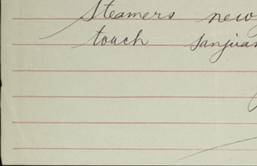 Steamers new
touch Sanjuan